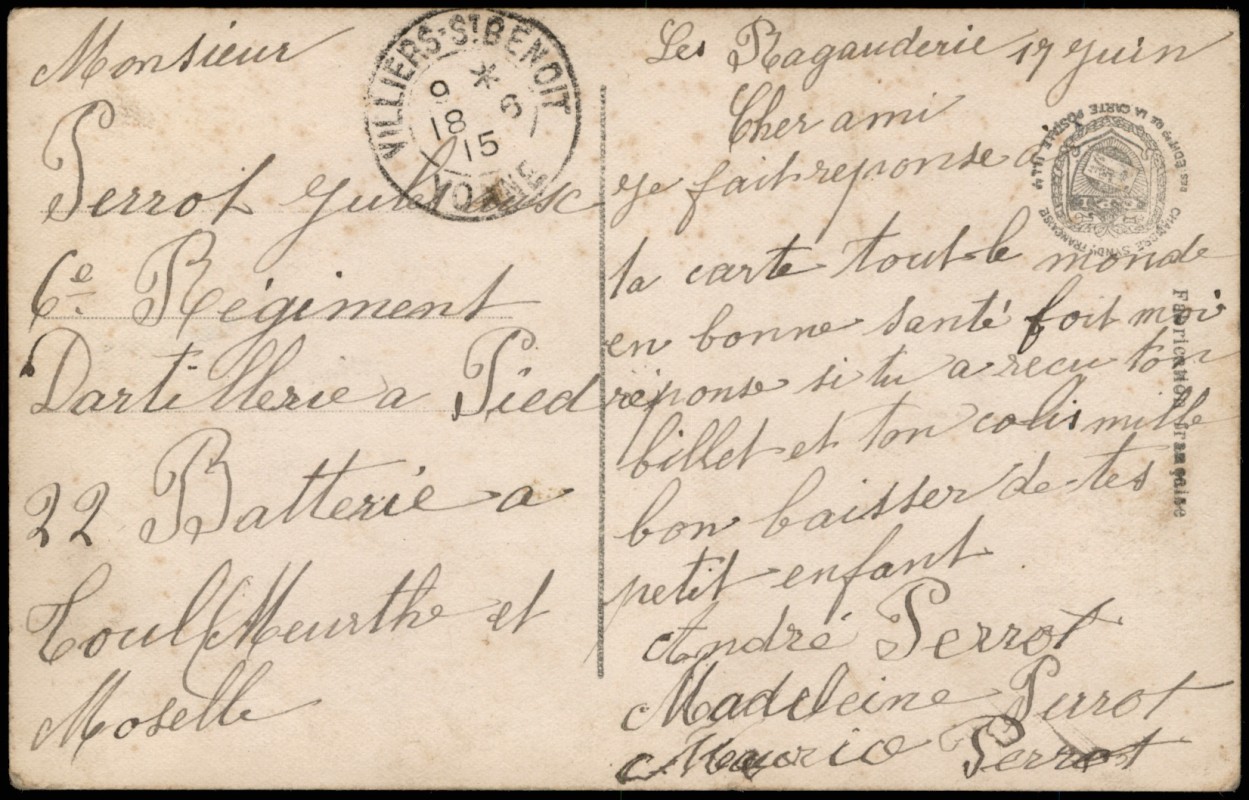 Monsieur
Perrot Jules
6e Régiment
Dartillerie a Pied
22 Batterie a
Toul Meurthe et
Moselle
VILLIERS-ST BENOIT
*
9 6
18
15
YONNE
Les Ragauderie 17 Juin
Cher ami
je fait reponse a
ta carte tout le monde
en bonne santé foit moi
réponse si tu a recu ton
billet et ton colis mille
bon baisser de tes
petit enfant
André Perrot
Madeleine Perrot
Maurice Perrot
CHAMBRE SYND. FRANÇAISE
DE LA CARTE POSTALE ILL.
Fabrication française